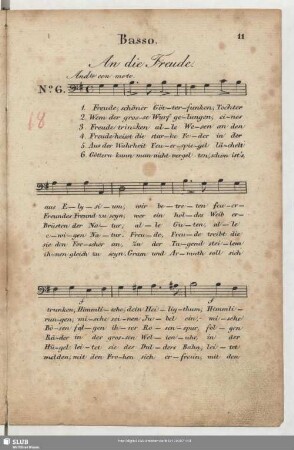 Basso.
11
An die Freude.
Andte con moto.
No. 6.
18
1. Freude, schöner Göt-ter-funken, Tochter
2. Wem der gros-se Wurf ge-lungen, ei-nes
3. Freude trinken al-le We-sen an den
4. Freude heisst die star-ke Fe-der in der
5. Aus der Wahrheit Feu-er-spie-gel lächelt
6. Göttern kann man nicht vergel-ten; schön ist's,
aus E-ly-si-um; wir be-tre-ten feu-er-
Freundes Freund zu seyn; wer ein hol-des Weib er-
Brüsten der Na-tur, al-le Guten, al-le
e-wi-gen Na-tur. Freu-de, Freu-de treibt die
sie den Forscher an. Zu der Tugend stei-lem
ihnen gleich zu seyn. Gram und Ar-muth soll sich
trunken, Himmli-sche, dein Hei-lig-thum, Himmli-
rungen, mi-sche sei-nen Ju-bel ein! mi-sche
Bö-sen fol-gen ih-rer Ro-sen-spur, fol-gen
Räder in der gros-sen Wel-ten-uh, in der
Hü-gel lei-tet sie der Dul-ders Bahn, lei-tet
melden; mit den Fro-hen sich er-freun, mit den
SLUB